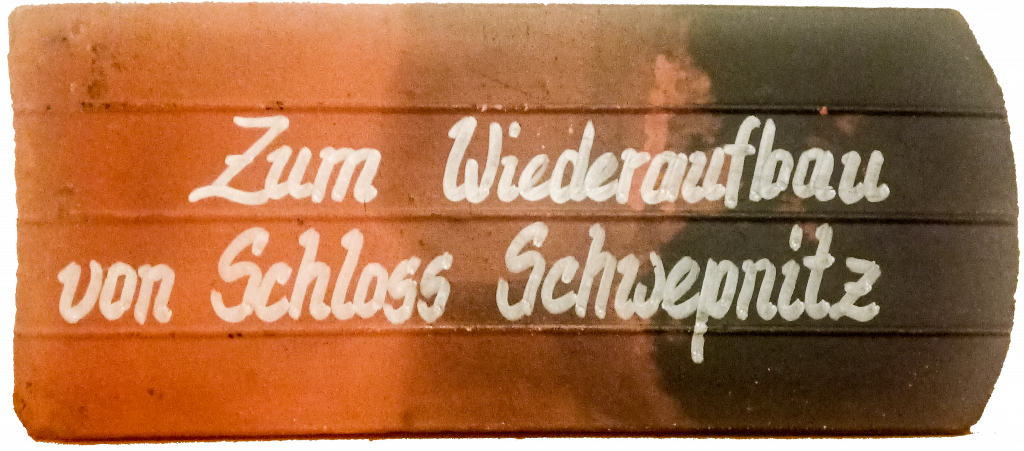 Zum Wiederaufbau
von Schloss Schwepnitz